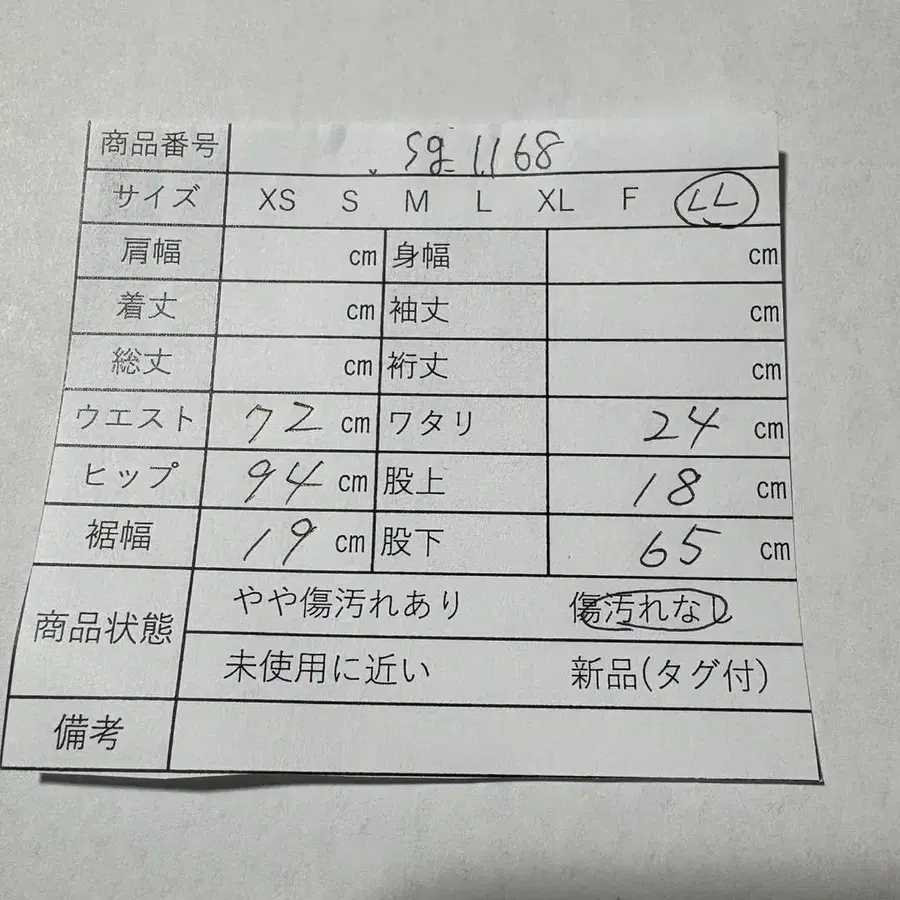 商品番号 sg-1168
サイズ XS S M L XL F LL
肩幅 cm 身幅 cm
着丈 cm 袖丈 cm
総丈 cm 裄丈 cm
ウエスト 72 cm ワタリ 24 cm
ヒップ 94 cm 股上 18 cm
裾幅 19 cm 股下 65 cm
商品状態 やや傷汚れあり 傷汚れなし
未使用に近い 新品(タグ付)
備考